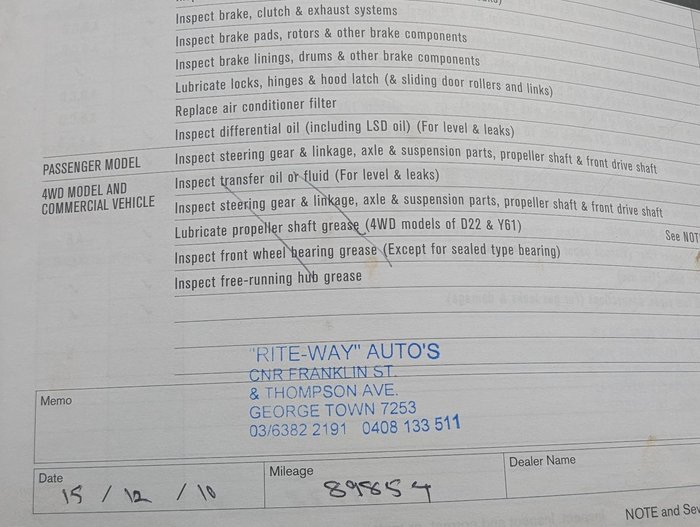 Inspect brake, clutch & exhaust systems
Inspect brake pads, rotors & other brake components
Inspect brake linings, drums & other brake components
Lubricate locks, hinges & hood latch (& sliding door rollers and links)
Replace air conditioner filter
Inspect differential oil (including LSD oil) (For level & leaks)
PASSENGER MODEL Inspect steering gear & linkage, axle & suspension parts, propeller shaft & front drive shaft
4WD MODEL AND
COMMERCIAL VEHICLE
Inspect transfer oil or fluid (For level & leaks)
Inspect steering gear & linkage, axle & suspension parts, propeller shaft & front drive shaft
Lubricate propeller shaft grease (4WD models of D22 & Y61) See
Inspect front wheel bearing grease (Except for sealed type bearing)
Inspect free-running hub grease
"RITE-WAY" AUTO'S
CNR FRANKLIN ST.
& THOMPSON AVE.
GEORGE TOWN 7253
03/6382 2191 0408 133 511
Memo
Date
15 / 12 / 10
Mileage
89854
Dealer Name
NOTE and